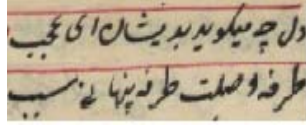 دل چه میکوید بدیشان ای عجب
طرفه وصلت طرفه پنهانے سبب